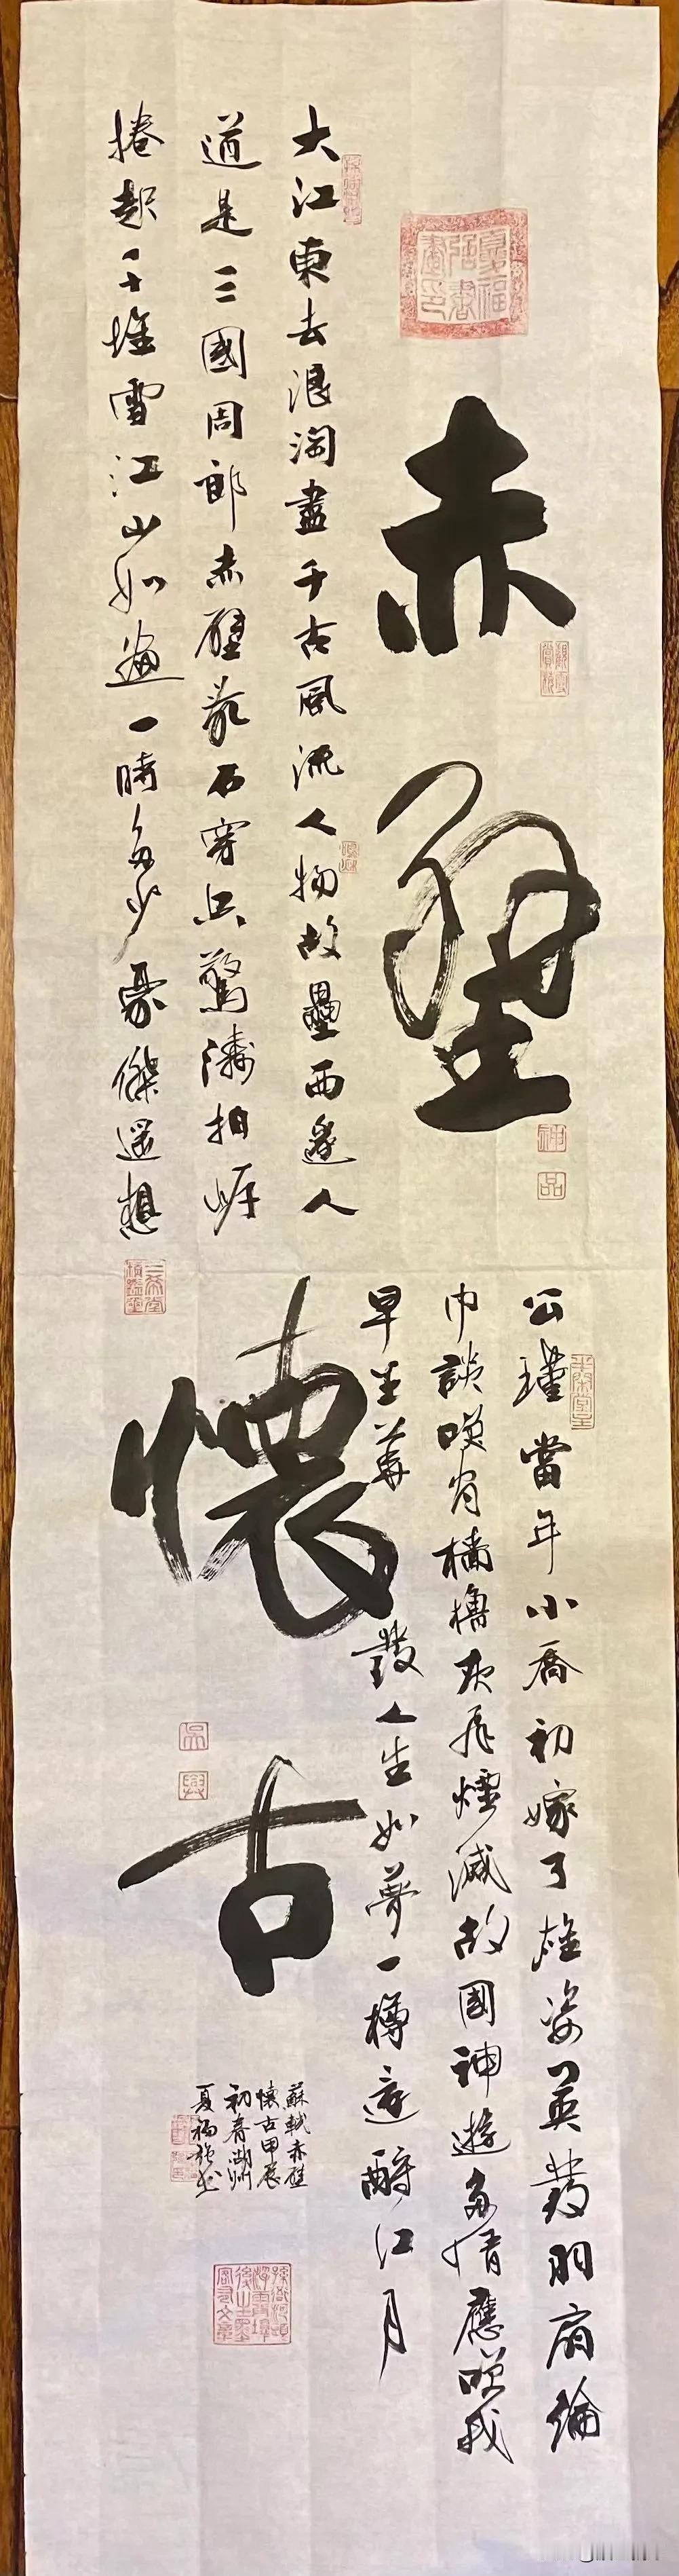 赤壁
大江東去浪淘盡千古風流人物故壘西邊人
道是三國周郎赤壁亂石穿空驚濤拍岸
捲起千堆雪江山如畫一時多少豪傑遙想
懷古
公瑾當年小喬初嫁了雄姿英發羽扇綸
巾談笑間檣櫓灰飛煙滅故國神遊多情應笑我
早生華髮人生如夢一樽還酹江月
蘇軾赤壁
懷古甲辰
初春湖州
夏福強書
神品
三希堂精鑑璽
吳興